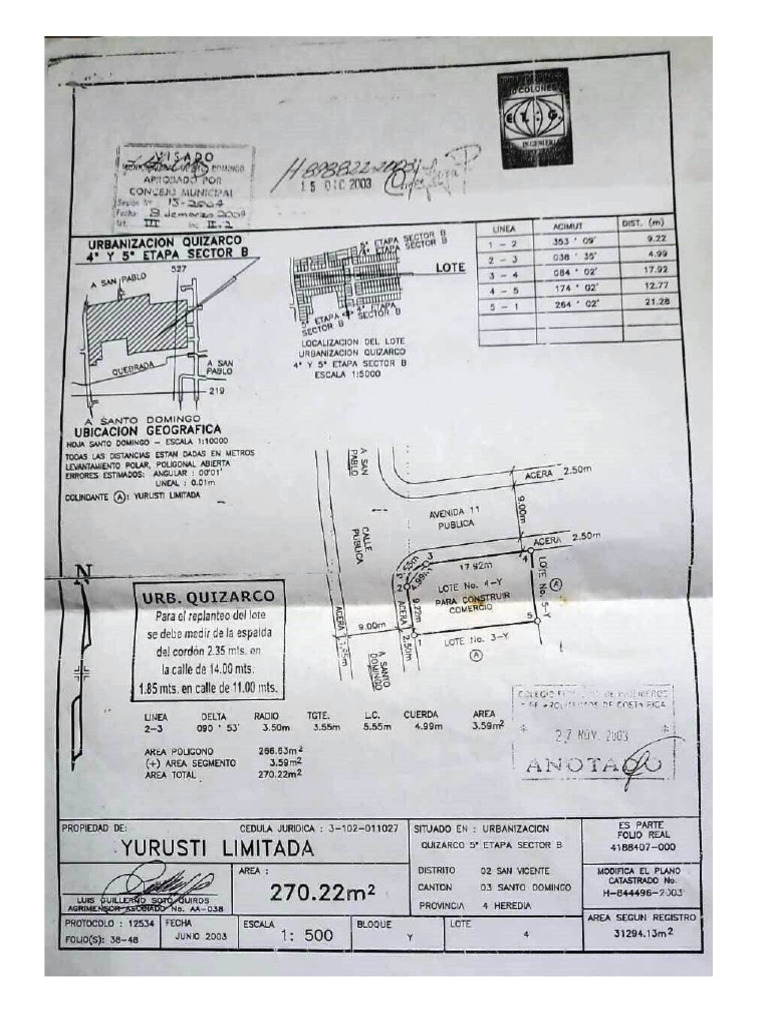 DO COLORES
E.I.G.
INGENIERI
VISADO
DOMINGO
APROBADO POR
CONCEJO MUNICIPAL
Sesión Nº 13-2004
Fecha: 8 de marzo 2004
Art. III Inc. II.2
H 898822-2003
15 DIC 2003
URBANIZACION QUIZARCO
4ª Y 5ª ETAPA SECTOR B
527
A SAN PABLO
QUEBRADA
A SAN
PABLO
219
A SANTO DOMINGO
UBICACION GEOGRAFICA
HOJA SANTO DOMINGO - ESCALA 1:10000
TODAS LAS DISTANCIAS ESTAN DADAS EN METROS
LEVANTAMIENTO POLAR, POLIGONAL ABIERTA
ERRORES ESTIMADOS: ANGULAR : 00'01'
LINEAL : 0.01m
COLINDANTE (A): YURUSTI LIMITADA
5ª ETAPA SECTOR B
4ª ETAPA SECTOR B
LOTE
5ª ETAPA
SECTOR B
4ª ETAPA
SECTOR B
LOCALIZACION DEL LOTE
URBANIZACION QUIZARCO
4ª Y 5ª ETAPA SECTOR B
ESCALA 1:5000
LINEA ACIMUT DIST. (m)
1 - 2 353 ° 09' 9.22
2 - 3 038 ° 35' 4.99
3 - 4 084 ° 02' 17.92
4 - 5 174 ° 02' 12.77
5 - 1 264 ° 02' 21.28
A SAN
PABLO
ACERA 2.50m
AVENIDA 11
PUBLICA
9.00m
CALLE
PUBLICA
ACERA 2.50m
5.55m
4.99m
3
17.92m
4
2
LOTE No. 4-Y
PARA CONSTRUIR
COMERCIO
LOTE No. 5-Y
(A)
ACERA
9.22m
5
ACERA 1.85m
9.00m
2.50m
1
LOTE No. 3-Y
(A)
A SANTO
DOMINGO
N
URB. QUIZARCO
Para el replanteo del lote
se debe medir de la espalda
del cordón 2.35 mts. en
la calle de 14.00 mts.
1.85 mts. en calle de 11.00 mts.
LINEA DELTA RADIO TGTE. L.C. CUERDA AREA
2-3 090 ° 53' 3.50m 3.55m 5.55m 4.99m 3.59m²
AREA POLIGONO 266.63m²
(+) AREA SEGMENTO 3.59m²
AREA TOTAL 270.22m²
COLEGIO DE INGENIEROS
Y DE ARQUITECTOS DE COSTA RICA
* 27 NOV. 2003 *
ANOTADO
PROPIEDAD DE: CEDULA JURIDICA : 3-102-011027
YURUSTI LIMITADA
SITUADO EN : URBANIZACION
QUIZARCO 5ª ETAPA SECTOR B
ES PARTE
FOLIO REAL
4188407-000
LUIS GUILLERMO SOTO QUIROS
AGRIMENSOR ASOCIADO No. AA-038
AREA :
270.22m²
DISTRITO 02 SAN VICENTE
CANTON 03 SANTO DOMINGO
PROVINCIA 4 HEREDIA
MODIFICA EL PLANO
CATASTRADO No.
H-844496-2003
PROTOCOLO : 12534
FOLIO(S): 38-48
FECHA
JUNIO 2003
ESCALA
1: 500
BLOQUE
Y
LOTE
4
AREA SEGUN REGISTRO
31294.13m²